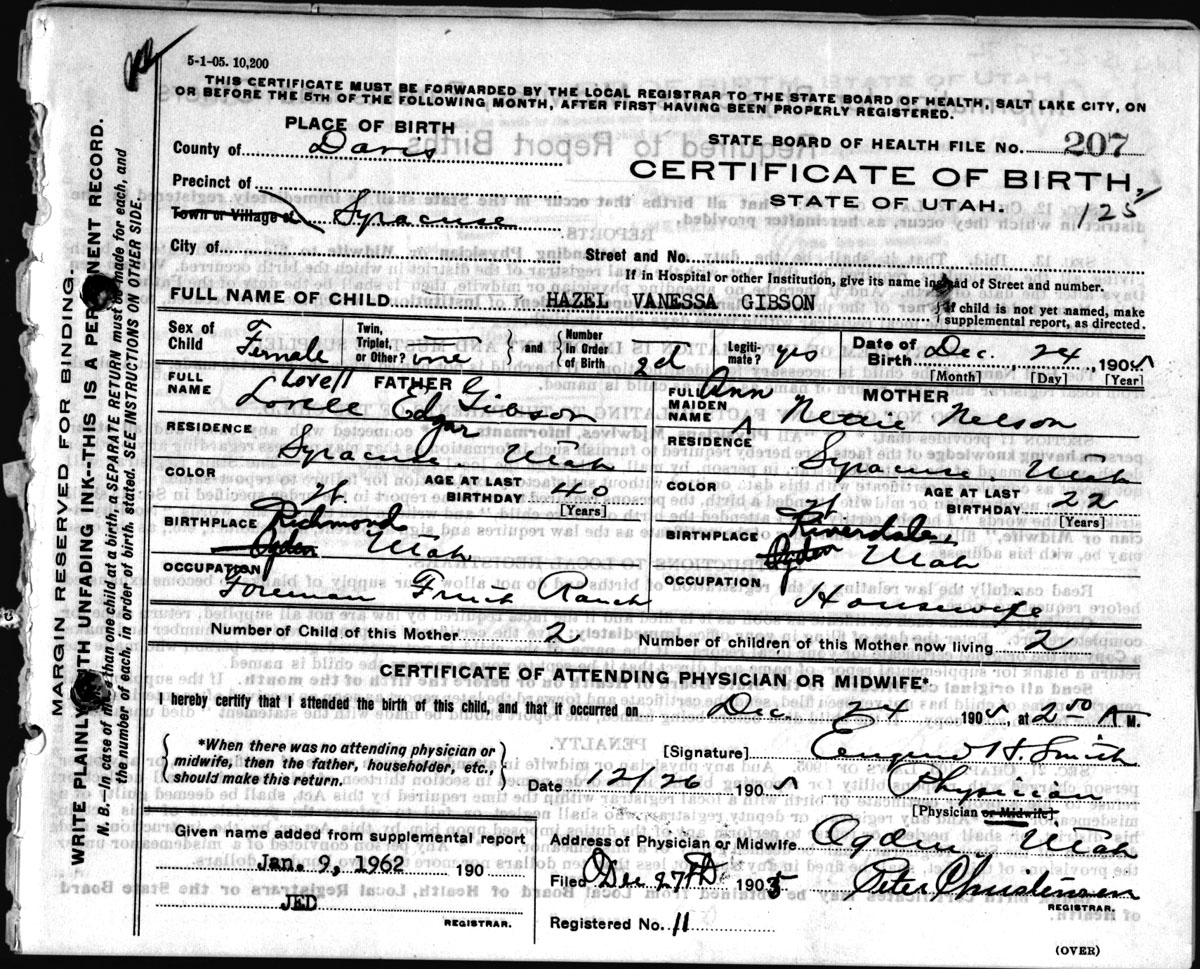 5-1-05. 10,200
THIS CERTIFICATE MUST BE FORWARDED BY THE LOCAL REGISTRAR TO THE STATE BOARD OF HEALTH, SALT LAKE CITY, ON
OR BEFORE THE 5TH OF THE FOLLOWING MONTH, AFTER FIRST HAVING BEEN PROPERLY REGISTERED.
PLACE OF BIRTH
County of Davis
Precinct of
Town or Village of Syracuse
City of
STATE BOARD OF HEALTH FILE No. 207
CERTIFICATE OF BIRTH,
STATE OF UTAH.
125
Street and No.
If in Hospital or other Institution, give its name instead of Street and number.
FULL NAME OF CHILD HAZEL VANESSA GIBSON
If child is not yet named, make
supplemental report, as directed.
Sex of Child Female
Twin, Triplet, or Other? one
and Number in Order of Birth 2d
Legitimate? yes
Date of Birth Dec. 24 1905
[Month] [Day] [Year]
FATHER
FULL NAME Lovell Lovell Edgar Gibson
RESIDENCE Syracuse Utah
COLOR W.
AGE AT LAST BIRTHDAY 40
[Years]
BIRTHPLACE Richmond
Ogden Utah
OCCUPATION Foreman Fruit Ranch
MOTHER
FULL MAIDEN NAME Ann Nettie Nelson
RESIDENCE Syracuse Utah
COLOR W
AGE AT LAST BIRTHDAY 22
[Years]
BIRTHPLACE Riverdale,
Ogden Utah
OCCUPATION Housewife
Number of Child of this Mother 2
Number of children of this Mother now living 2
CERTIFICATE OF ATTENDING PHYSICIAN OR MIDWIFE*
I hereby certify that I attended the birth of this child, and that it occurred on Dec. 24 1905, at 2:00 A M.
*When there was no attending physician or
midwife, then the father, householder, etc.,
should make this return.
[Signature] H. Smith
Date 12/26 1905
Physician
[Physician or Midwife]
Address of Physician or Midwife Ogden, Utah
Filed Dec 27TH 1905 Peter Christensen
REGISTRAR.
Registered No. 11
Given name added from supplemental report
Jan. 9, 1962 190
JED
REGISTRAR.
(OVER)
MARGIN RESERVED FOR BINDING.
WRITE PLAINLY WITH UNFADING INK--THIS IS A PERMANENT RECORD.
N. B.--In case of more than one child at a birth, a SEPARATE RETURN must be made for each, and
the number of each, in order of birth, stated. SEE INSTRUCTIONS ON OTHER SIDE.